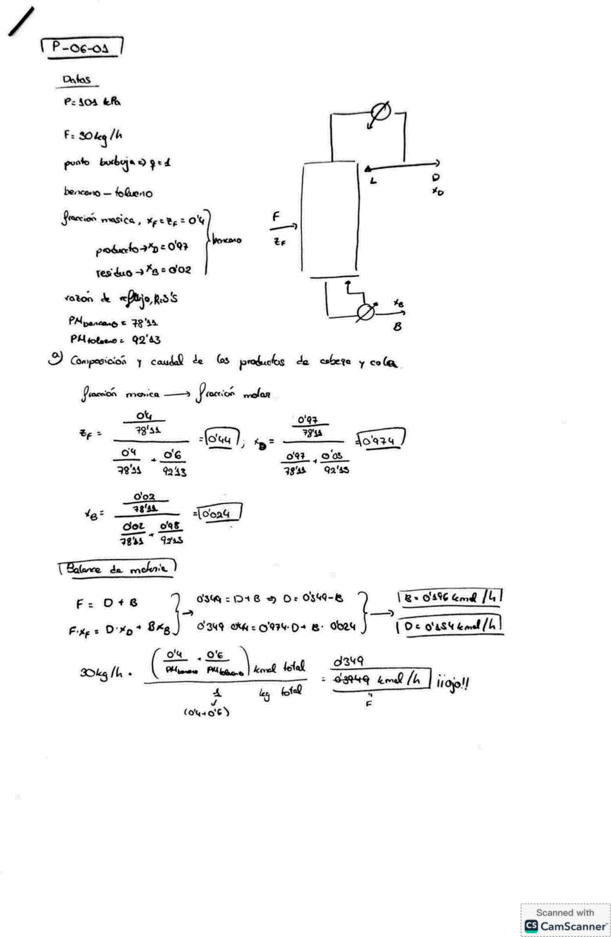 P-06-01
Datos
P=101 kPa
F=30kg/h
punto burbuja ⇒ q=1
benceno-tolueno
fracción masica, xF=zF=0'4
producto→xD=0'97
residuo→xB=0'02
benceno
razón de reflujo, R=3'5
PMbenceno=78'11
PMtolueno=92'13
F
zF
L
D
xD
xB
B
a) Composición y caudal de los productos de cabeza y cola
fracción masica → fracción molar
zF = (0'4/78'11)/(0'4/78'11 + 0'6/92'13) = 0'44; xD = (0'97/78'11)/(0'97/78'11 + 0'03/92'13) = 0'974
xB = (0'02/78'11)/(0'02/78'11 + 0'98/92'13) = 0'024
Balance de materia
F = D + B
F·xF = D·xD + BxB
0'349 = D+B ⇒ D=0'349-B
0'349·0'44=0'974·D+B·0'024
B=0'196 kmol/h
D=0'154 kmol/h
30kg/h · (0'4/PMbenceno + 0'6/PMtolueno) kmol total / 1 kg total = 0'3949 kmol/h ¡¡ojo!!
0'349
(0'4+0'6)
F
Scanned with
CS CamScanner